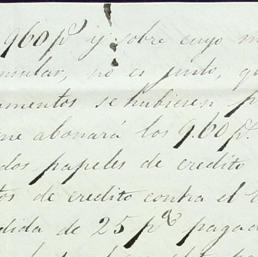 960 p.s y sobre cuyo m
nsular, no es justo, qu
umentos se hubiesen p
me abonará los 960 p.s
dos papeles de credito
tos de credito contra el
dida de 25 p% pagad